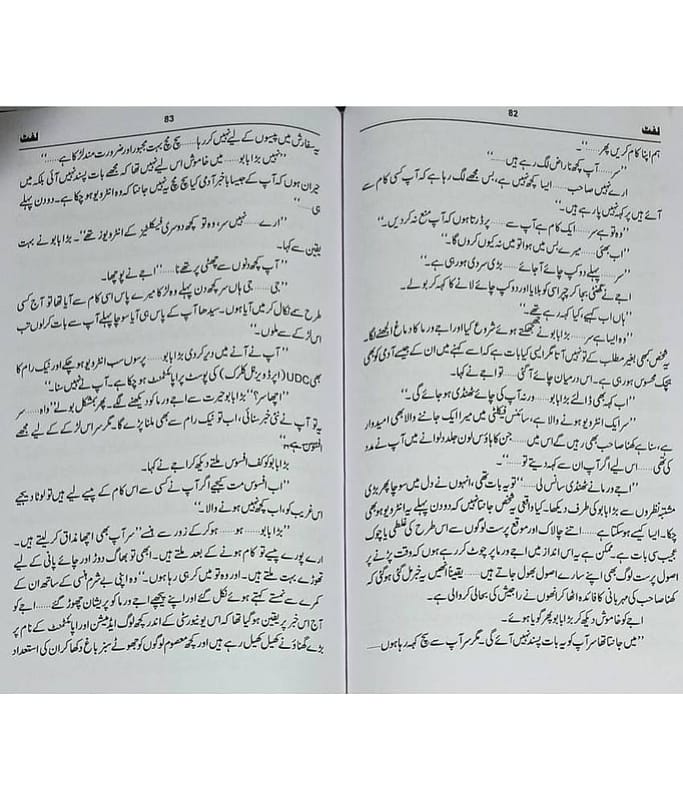 82
لفٹ
ہم اپنا کام کریں پھر……‘‘۔
’’سر…… آپ کچھ ناراض لگ رہے ہیں……‘‘
ارے نہیں صاحب…… ایسا کچھ نہیں ہے، بس مجھے لگ رہا ہے کہ آپ کسی کام سے
آئے ہیں پر کہہ نہیں پا رہے ہیں۔‘‘
’’وہ تو ہے سر…… ایک کام ہے آپ سے…… پر ڈرتا ہوں کہ آپ منع نہ کر دیں۔‘‘
’’اب بھئی…… میرے بس میں ہوا تو میں نہ کیوں کروں گا۔‘‘
’’سر…… پہلے دو کپ چائے آ جائے…… بڑی سردی ہو رہی ہے۔‘‘
اجے نے گھنٹی بجا کر چپراسی کو بلایا اور دو کپ چائے لانے کا کہہ کر بولے۔
’’ہاں اب کہیے، کیا کہہ رہے تھے۔‘‘
’’وہ ایسا ہے سر…… بڑا بابو نے جھجھکتے ہوئے شروع کیا اور اجے ورما کا دماغ الجھنے لگا۔
یہ شخص کبھی بغیر مطلب کے تو نہیں آتا مگر ایسی کیا بات ہے کہ اسے کہنے میں ان کے جیسے آدمی کو بھی
ہچک محسوس ہو رہی ہے۔ اس درمیان چائے آ گئی…… تو اجے نے کہا۔
’’اب کہہ بھی ڈالئے بڑا بابو…… ورنہ آپ کی چائے ٹھنڈی ہو جائے گی۔‘‘
’’سر ایک انٹرویو ہونے والا ہے، سائنس فیکلٹی میں میرا ایک جاننے والا بھی امیدوار
ہے، سنا ہے کھنا صاحب بھی رہیں گے اس میں…… جن کا ہاؤس لون جلد دلوانے میں آپ نے مدد
کی تھی…… اس لیے اگر آپ ان سے کہہ دیتے تو……‘‘۔
’’اجے ورما نے ٹھنڈی سانس لی……‘‘ تو یہ بات تھی، انہوں نے دل میں سوچا پھر بڑی
مشتبہ نظروں سے بڑا بابو کی طرف دیکھا۔ کیا واقعی یہ شخص جانتا نہیں کہ دو دن پہلے یہ انٹرویو ہو بھی
چکا۔ ایسا کیسے ہو سکتا ہے…… اتنے چالاک اور موقع پرست لوگوں سے اس طرح کی غلطی یا چوک
عجیب سی بات ہے۔ ممکن ہے یہ اس انداز میں اجے ورما پر چوٹ کر رہے ہوں کہ وقت پڑنے پر
اصول پرست لوگ بھی اپنے سارے اصول بھول جاتے ہیں…… یقیناً انھیں یہ خبر مل گئی ہو گی کہ
کھنا صاحب کی مہربانی کا فائدہ اٹھا کر انھوں نے راجیش کی بحالی کروالی ہے۔
اجے کو خاموش دیکھ کر بڑا بابو پھر گویا ہوئے۔
’’میں جانتا تھا سر آپ کو یہ بات پسند نہیں آئے گی۔ مگر سر آپ سے سچ کہہ رہا ہوں……
83
لفٹ
یہ سفارش میں پیسوں کے لیے نہیں کر رہا…… سچ مچ بہت مجبور اور ضرورت مند لڑکا ہے……‘‘
’’نہیں بڑا بابو…… میں خاموش اس لیے نہیں تھا کہ مجھے بات پسند نہیں آئی بلکہ میں
حیران ہوں کہ آپ کے جیسا باخبر آدمی کیا سچ مچ یہ نہیں جانتا کہ وہ انٹرویو ہو چکا ہے۔ دو دن پہلے
ہی……‘‘
’’ارے…… نہیں سر، وہ تو کچھ دوسری فیکلٹیز کے انٹرویوز تھے‘‘۔ بڑا بابو نے بہت
یقین سے کہا۔
’’آپ کچھ دنوں سے چھٹی پر تھے نا……‘‘ اجے نے پوچھا۔
’’جی…… جی ہاں سر کچھ دن پہلے وہ لڑکا میرے پاس اسی کام سے آیا تھا تو آج کسی
طرح سے نکال کر میں آیا ہوں۔ سیدھا آپ کے پاس ہی آیا سوچا پہلے آپ سے بات کر لوں تب
اس لڑکے سے ملوں۔‘‘
’’آپ نے آنے میں دیر کر دی بڑا بابو…… پرسوں سب انٹرویو ہو چکے اور نیک رام کا
بھی UDC (اپر ڈویزنل کلرک) کی پوسٹ پر اپائنٹمنٹ ہو چکا ہے۔ آپ نے نہیں سنا۔‘‘
’’اچھا سر؟‘‘ بڑا بابو حیرت سے اجے ورما کو دیکھنے لگے۔ پھر بمشکل بولے ’’واہ…… سر
یہ تو آپ نے نئی خبر سنائی، اب تو نیک رام سے بھی ملنا پڑے گا۔ مگر سر اس لڑکے کے لیے مجھے
افسوس ہے۔‘‘
بڑا بابو کو کف افسوس ملتے دیکھ کر اجے نے کہا۔
’’اب افسوس مت کیجیے اگر آپ نے کسی سے اس کام کے پیسے لیے ہیں تو لوٹا دیجیے
اس غریب کو، اب کچھ نہیں ہونے والا۔‘‘
’’بڑا بابو…… ہو…… ہو کر کے زور سے ہنسے‘‘ سر آپ بھی اچھا مذاق کر لیتے ہیں۔
ارے پورے پیسے تو کام ہونے کے بعد ملتے ہیں۔ ابھی تو بھاگ دوڑ اور چائے پانی کے لیے
تھوڑے بہت ملتے ہیں۔ اور وہ تو میں کر ہی رہا ہوں۔‘‘ وہ اپنی بے شرم ہنسی کے ساتھ ان کے
کمرے سے نمستے کہتے ہوئے نکل گئے اور اپنے پیچھے اجے ورما کو پریشان چھوڑ گئے…… اجے کو
آج اس خبر پر یقین ہو گیا تھا کہ اس یونیورسٹی کے اندر کچھ لوگ ایڈمیشن اور اپائنٹمنٹ کے نام پر
بڑے گھناؤنے کھیل کھیل رہے ہیں اور کچھ معصوم لوگوں کو جھوٹے سبز باغ دکھا کر ان کی استعداد